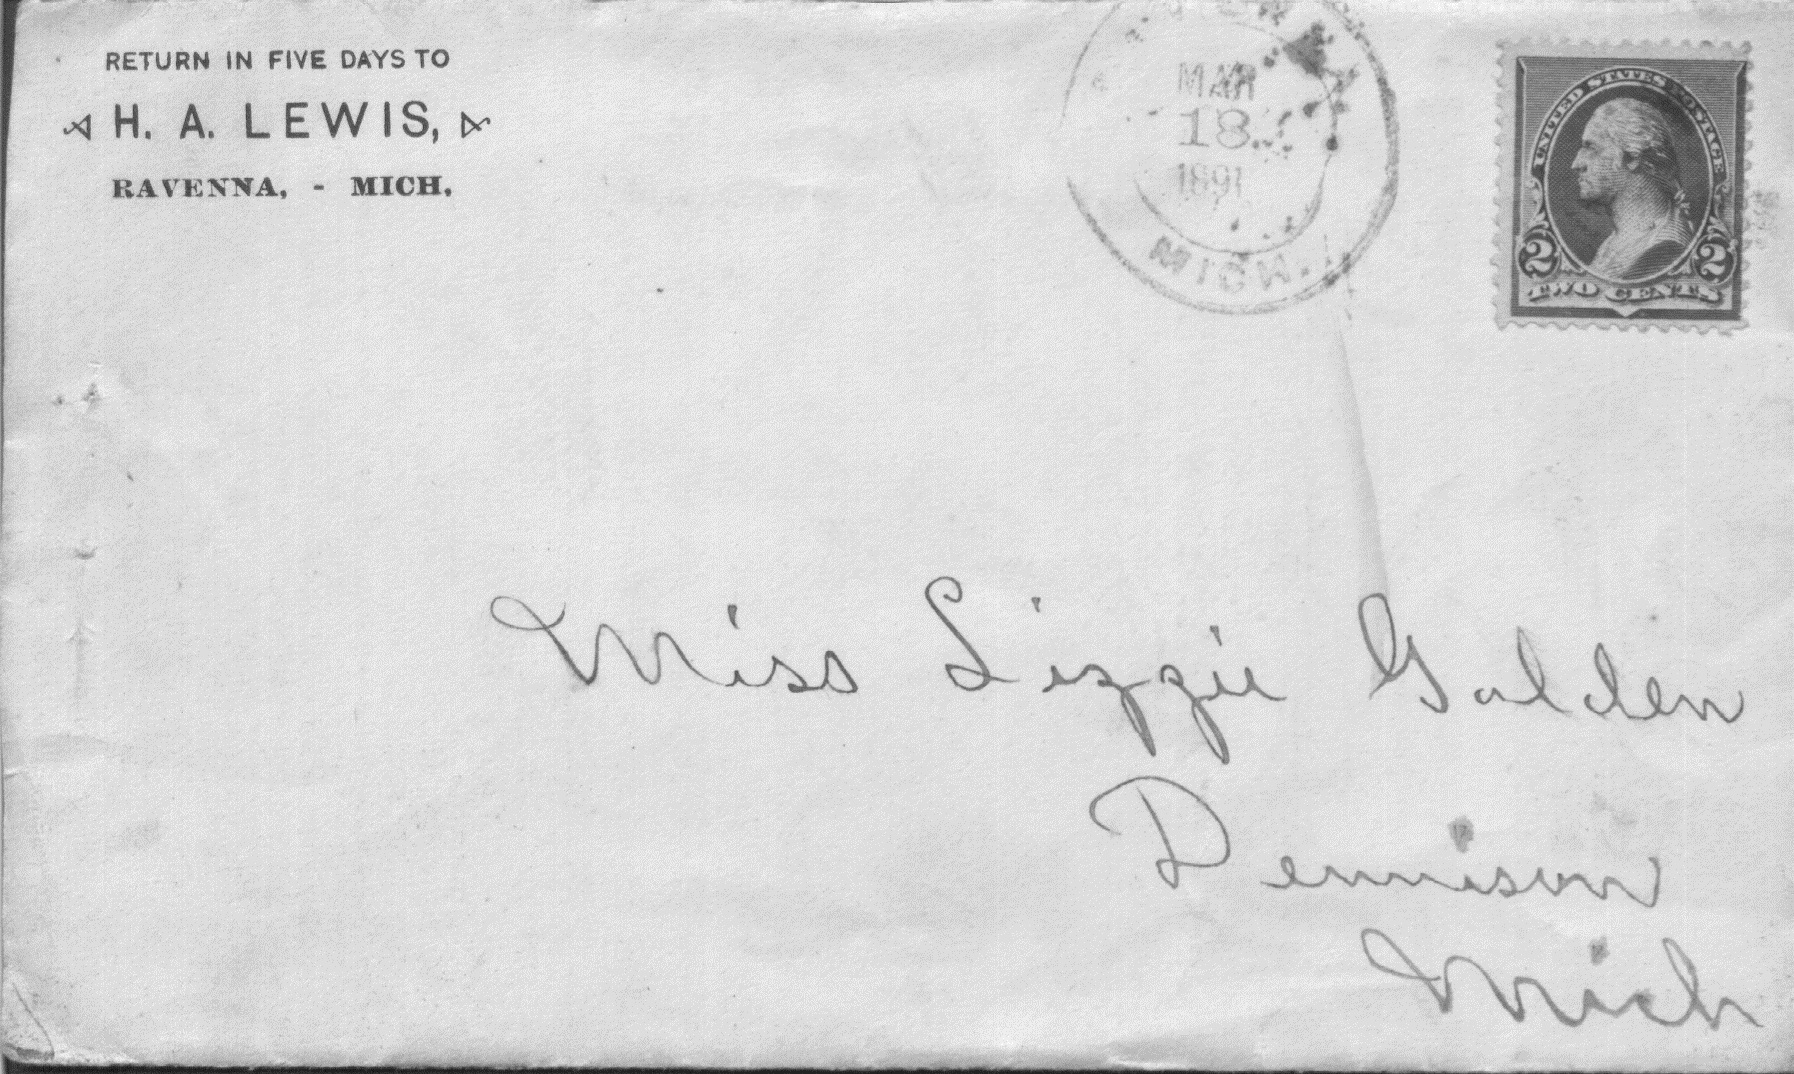 RETURN IN FIVE DAYS TO
H. A. LEWIS,
RAVENNA, - MICH.
MAR
18
1891
MICH.
UNITED STATES POSTAGE
2 2
TWO CENTS
Miss Lizzie Golden
Dennison
Mich